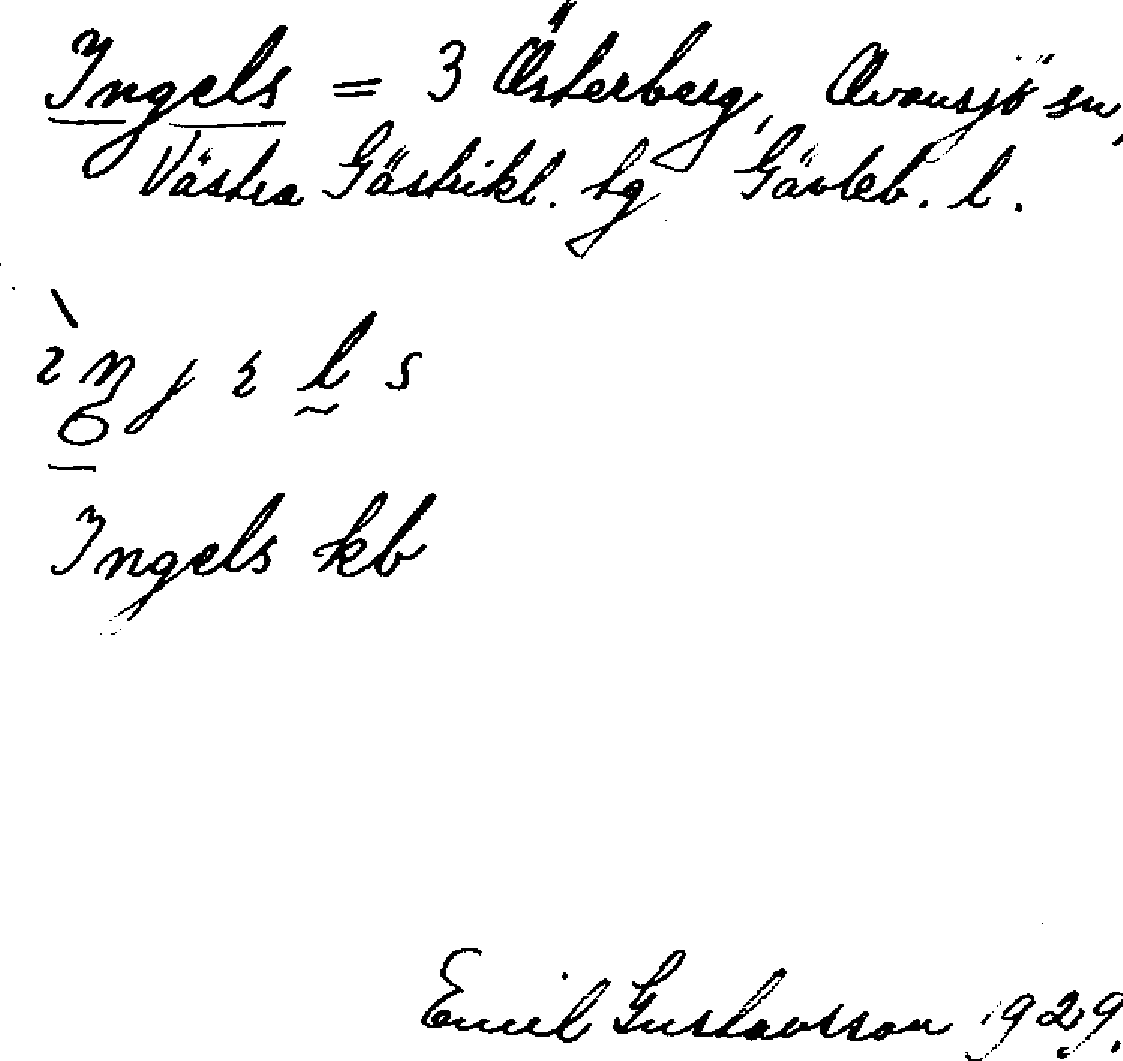 Ingels = 3 Österberg, Ovansjö sn,
Västra Gästrikl. tg Gävleb. l.
Ingels kb
Emil Gustavsson 1929.